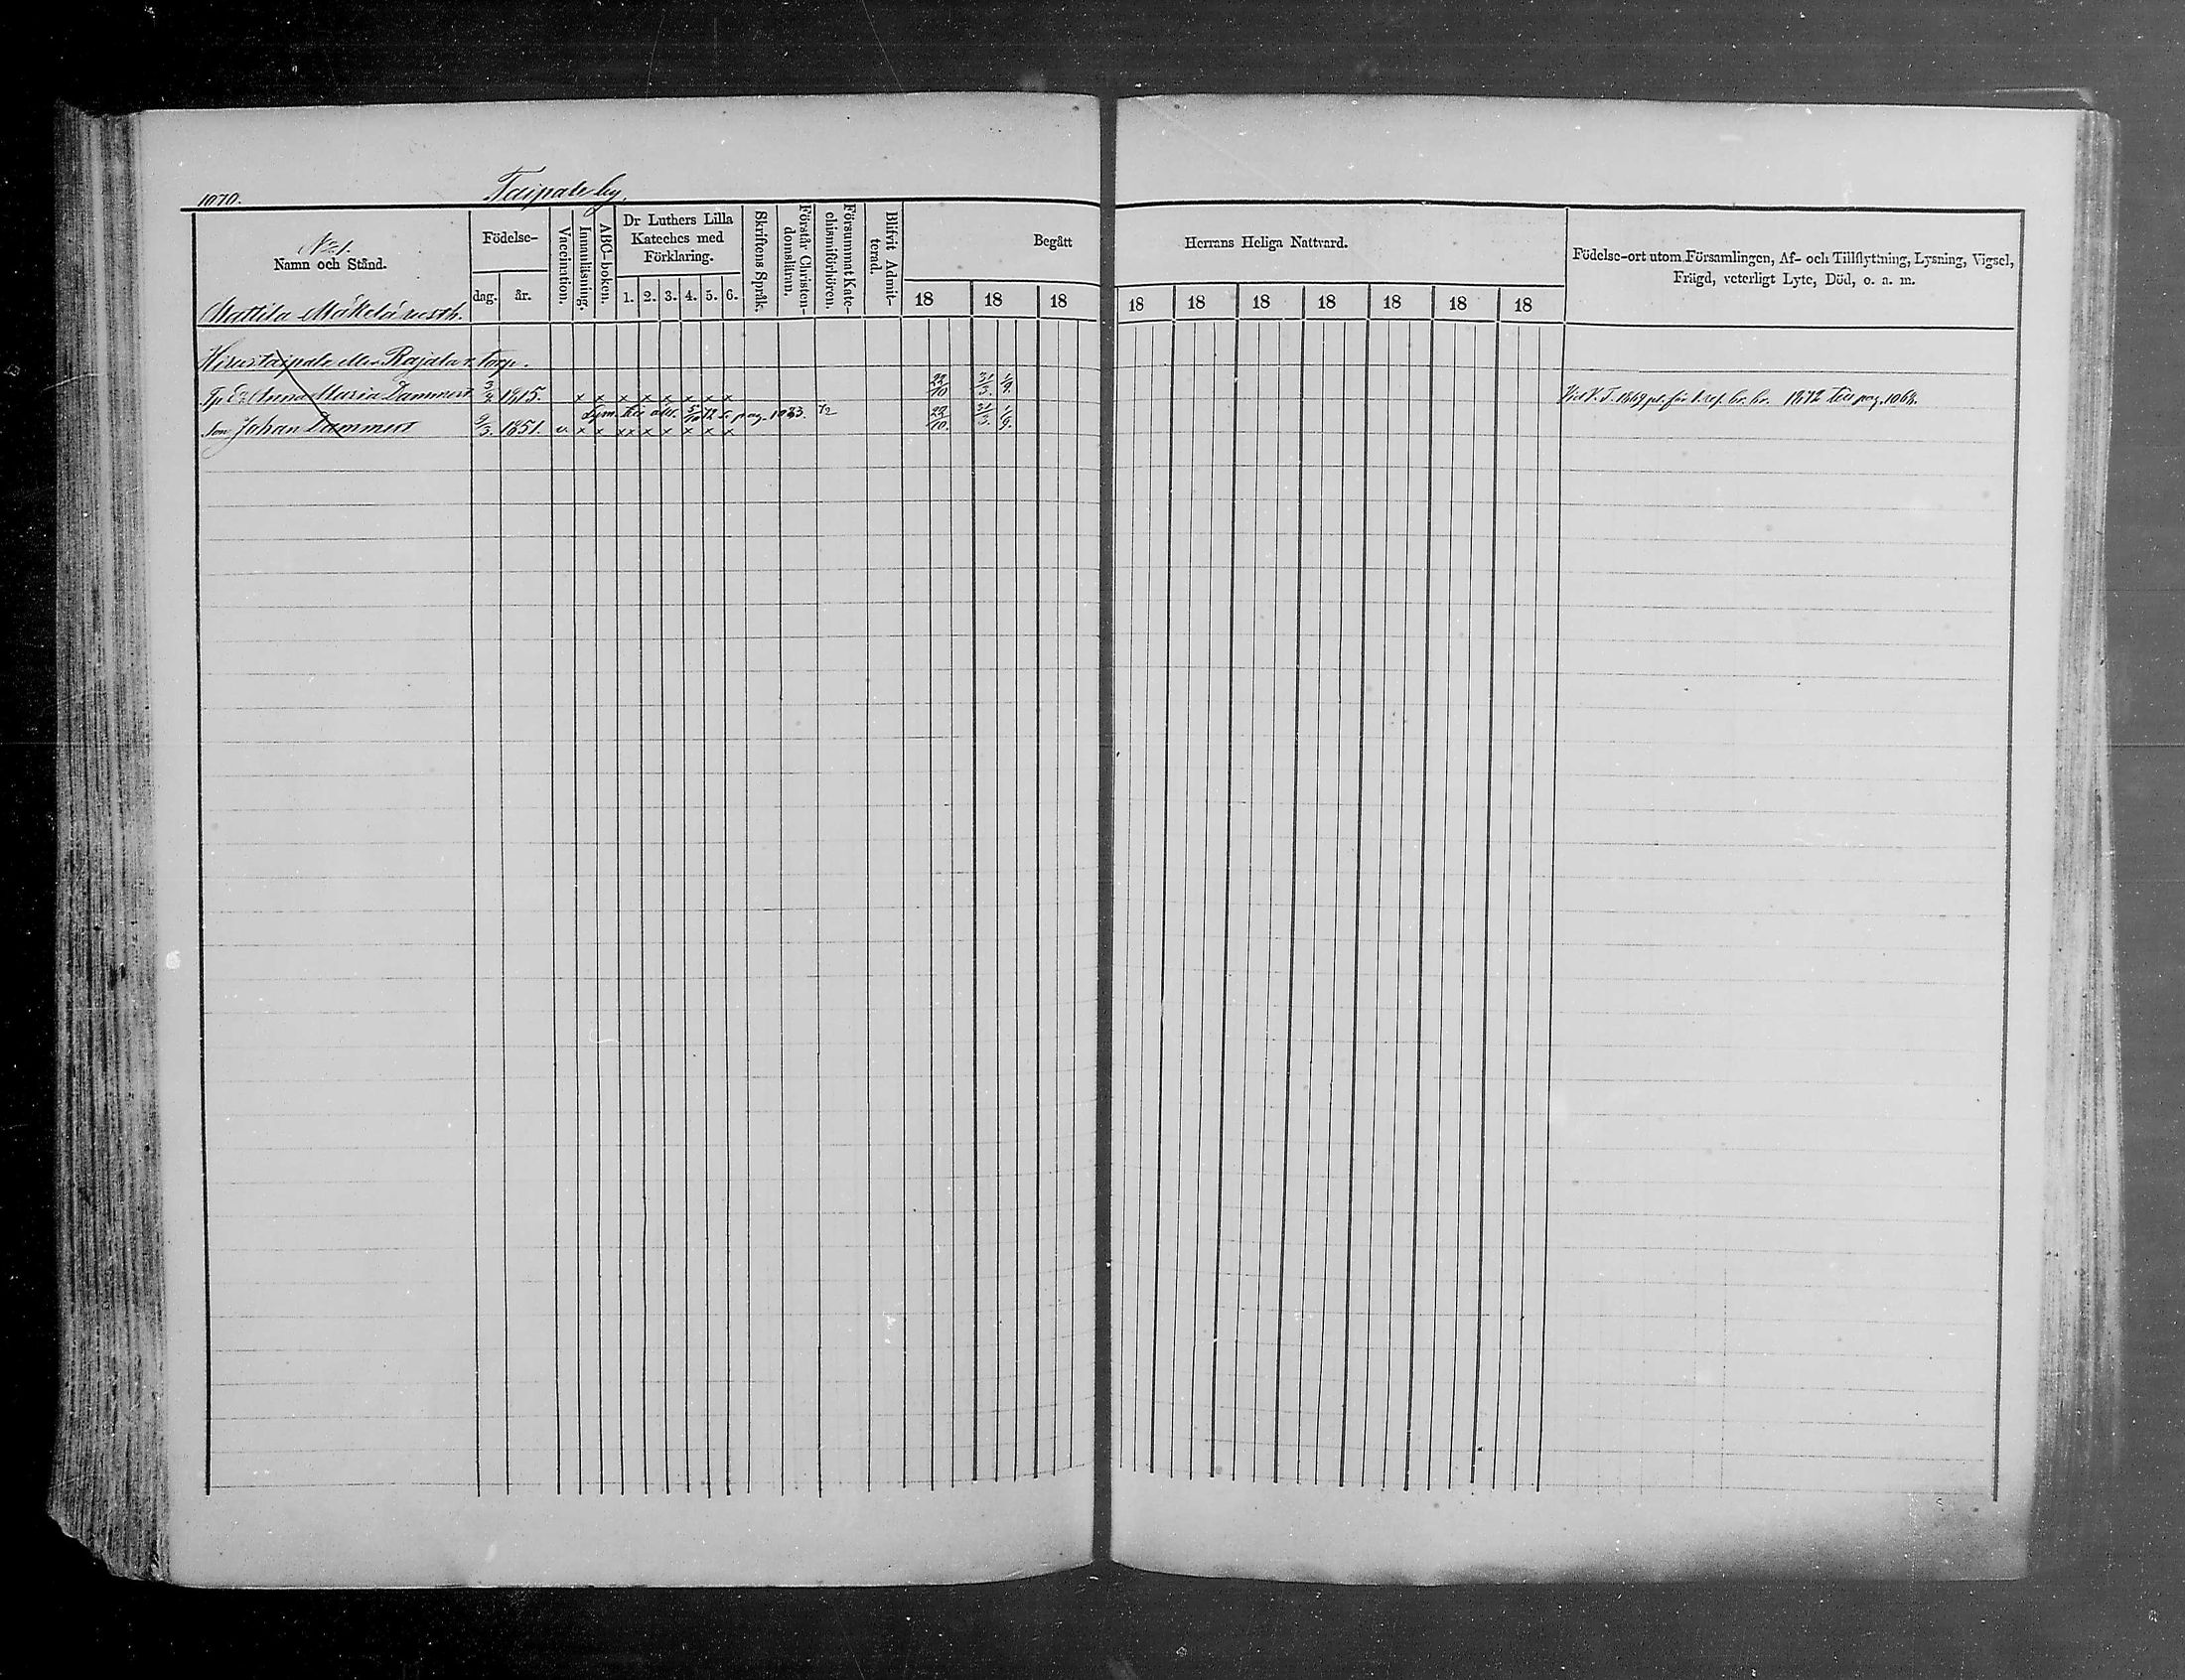 1070. Taipale by.
No 1.
Namn och Stånd.
Mattila Mäkelä resth.
Födelse-
dag. år.
Vaccination.
Innanläsning.
ABC-boken.
Dr Luthers Lilla
Kateches med
Förklaring.
1. 2. 3. 4. 5. 6.
Skriftens Språk.
Förstår Christen-
domsläran.
Försummat Kate-
chismiförhören.
Blifvit Admit-
terad.
Begått Herrans Heliga Nattvard.
18 18 18 18 18 18 18 18 18 18
Födelse-ort utom Församlingen, Af- och Tillflyttning, Lysning, Vigsel,
Frägd, veterligt Lyte, Död, o. a. m.
Rajala torp.
Anna Maria Dammert 3/2 1815. x x x x x x x x 22/10 31/3. 1/9. 1869 1872 till pag. 1068.
5/10 72 pag. 1033. 72
Son Johan Dammert 9/3. 1851. v. x x xx x x x x x 22/10. 31/3. 1/9.